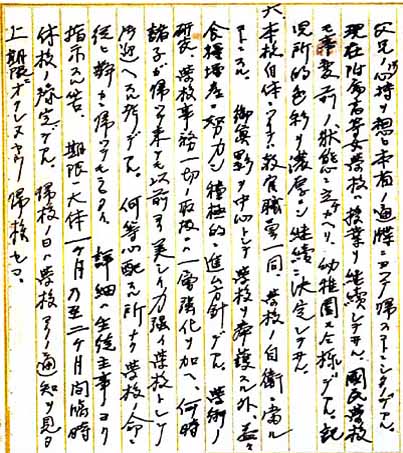 父兄ノ心持ヲ想ヒ本省ノ通牒ニヨッテ帰スコトニシタノデアル。
現在附属高等女学校ハ授業ヲ継続シテヰル。国民学校
モ事変前ノ状態ニ立チカヘリ、幼稚園又仝様デアル。託
児所的色彩ヲ濃厚ニ継続ニ決定シテヰル。
六、本校自体トシテハ、教官職員一同 学校ノ自衛ニ当ル
コトニスル。 御真影ヲ中心トシテ学校ヲ奉護スル外、益々
食糧増産ニ努力シ積極的ニ進ム方針デアル。 学術ノ
研究、学校事務一切ノ取扱ハ一層強化ヲ加ヘ、何時
諸子ガ帰ッテ来テモ以前ヨリ美シイ力強イ学校トシテ
迎ヘル所デアル。 何等心配スル所ナク学校ノ命ニ
従ヒ静カニ帰ッテモラヒタイ。 詳細ハ生徒主事ヨリ
指示スル筈。 期限ハ大体一ケ月乃至二ケ月間臨時
休校ノ予定デアル。 帰校ノ日ハ学校ヨリノ通知ヲ見タ
上期限ニオクレヌヤウ帰校セヨ。